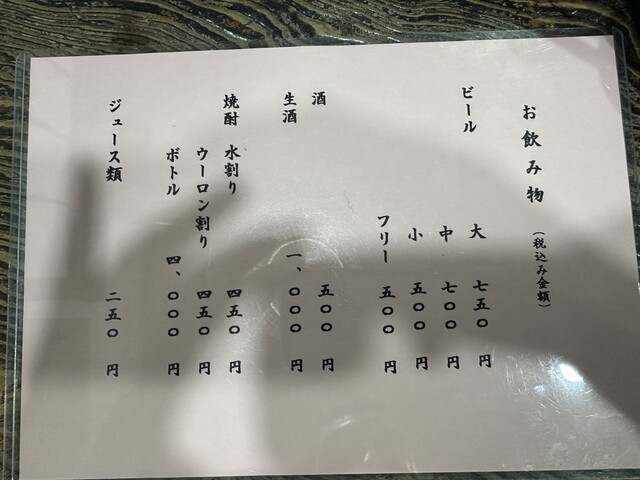 お飲み物 (税込み金額)
ビール 大 七五〇 円
中 七〇〇 円
小 五〇〇 円
フリー 五〇〇 円
酒 五〇〇 円
生酒 一、〇〇〇 円
焼酎 水割り 四五〇 円
ウーロン割り 四五〇 円
ボトル 四、〇〇〇 円
ジュース類 二五〇 円